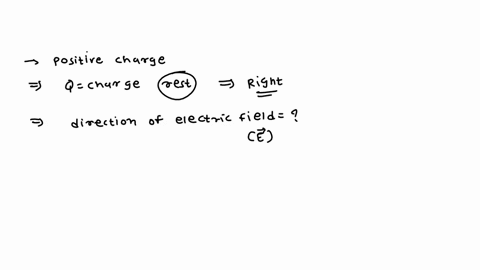 → Positive charge
⇒ Q = charge rest ⇒ Right
⇒ direction of electric field = ?
(E⃗)